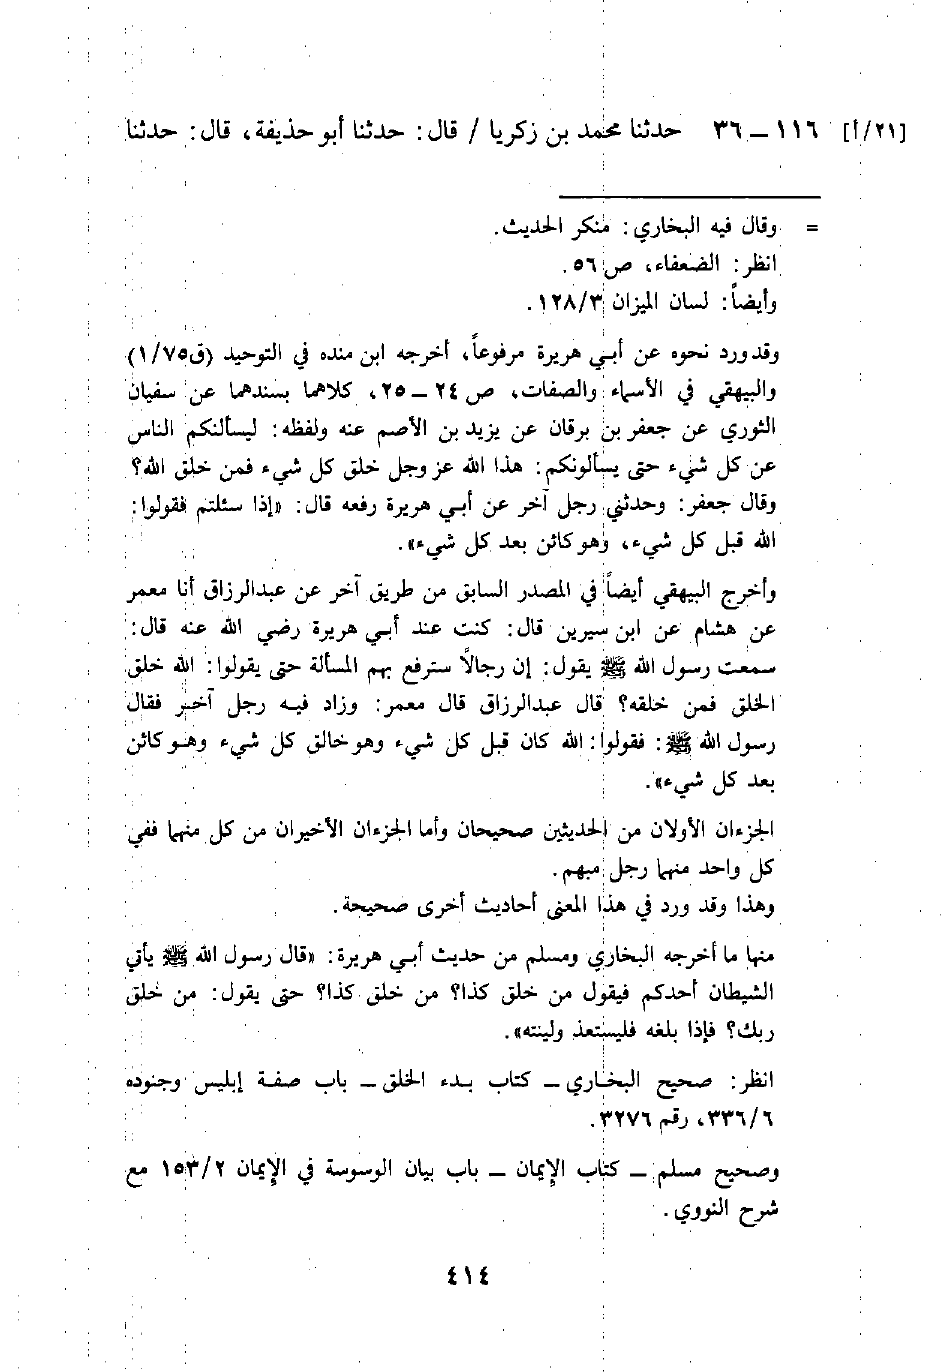 [٢١/أ] ١١٦ ــ ٣٦ حدثنا محمد بن زكريا / قال: حدثنا أبو حذيفة، قال: حدثنا
= وقال فيه البخاري: منكر الحديث.
انظر: الضعفاء، ص ٥٦.
وأيضاً: لسان الميزان ١٢٨/٣.
وقد ورد نحوه عن أبي هريرة مرفوعاً، أخرجه ابن منده في التوحيد (ق١/٧٥)
والبيهقي في الأسماء والصفات، ص ٢٤ ــ ٢٥، كلاهما بسندهما عن سفيان
الثوري عن جعفر بن برقان عن يزيد بن الأصم عنه ولفظه: ليسألنكم الناس
عن كل شيء حتى يسألونكم: هذا الله عز وجل خلق كل شيء فمن خلق الله؟
وقال جعفر: وحدثني رجل آخر عن أبي هريرة رفعه قال: «إذا سئلتم فقولوا:
الله قبل كل شيء، وهو كائن بعد كل شيء».
وأخرج البيهقي أيضاً في المصدر السابق من طريق آخر عن عبدالرزاق أنا معمر
عن هشام عن ابن سيرين قال: كنت عند أبي هريرة رضي الله عنه قال:
سمعت رسول الله ﷺ يقول: إن رجالاً سترفع بهم المسألة حتى يقولوا: الله خلق
الخلق فمن خلقه؟ قال عبدالرزاق قال معمر: وزاد فيه رجل آخر فقال
رسول الله ﷺ: فقولوا: الله كان قبل كل شيء وهو خالق كل شيء وهو كائن
بعد كل شيء».
الجزءان الأولان من الحديثين صحيحان وأما الجزءان الأخيران من كل منهما ففي
كل واحد منهما رجل مبهم.
وهذا وقد ورد في هذا المعنى أحاديث أخرى صحيحة.
منها ما أخرجه البخاري ومسلم من حديث أبي هريرة: «قال رسول الله ﷺ يأتي
الشيطان أحدكم فيقول من خلق كذا؟ من خلق كذا؟ حتى يقول: من خلق
ربك؟ فإذا بلغه فليستعذ ولينته».
انظر: صحيح البخاري ــ كتاب بدء الخلق ــ باب صفة إبليس وجنوده
٣٣٦/٦، رقم ٣٢٧٦.
وصحيح مسلم ــ كتاب الإيمان ــ باب بيان الوسوسة في الإيمان ١٥٣/٢ مع
شرح النووي.
٤١٤